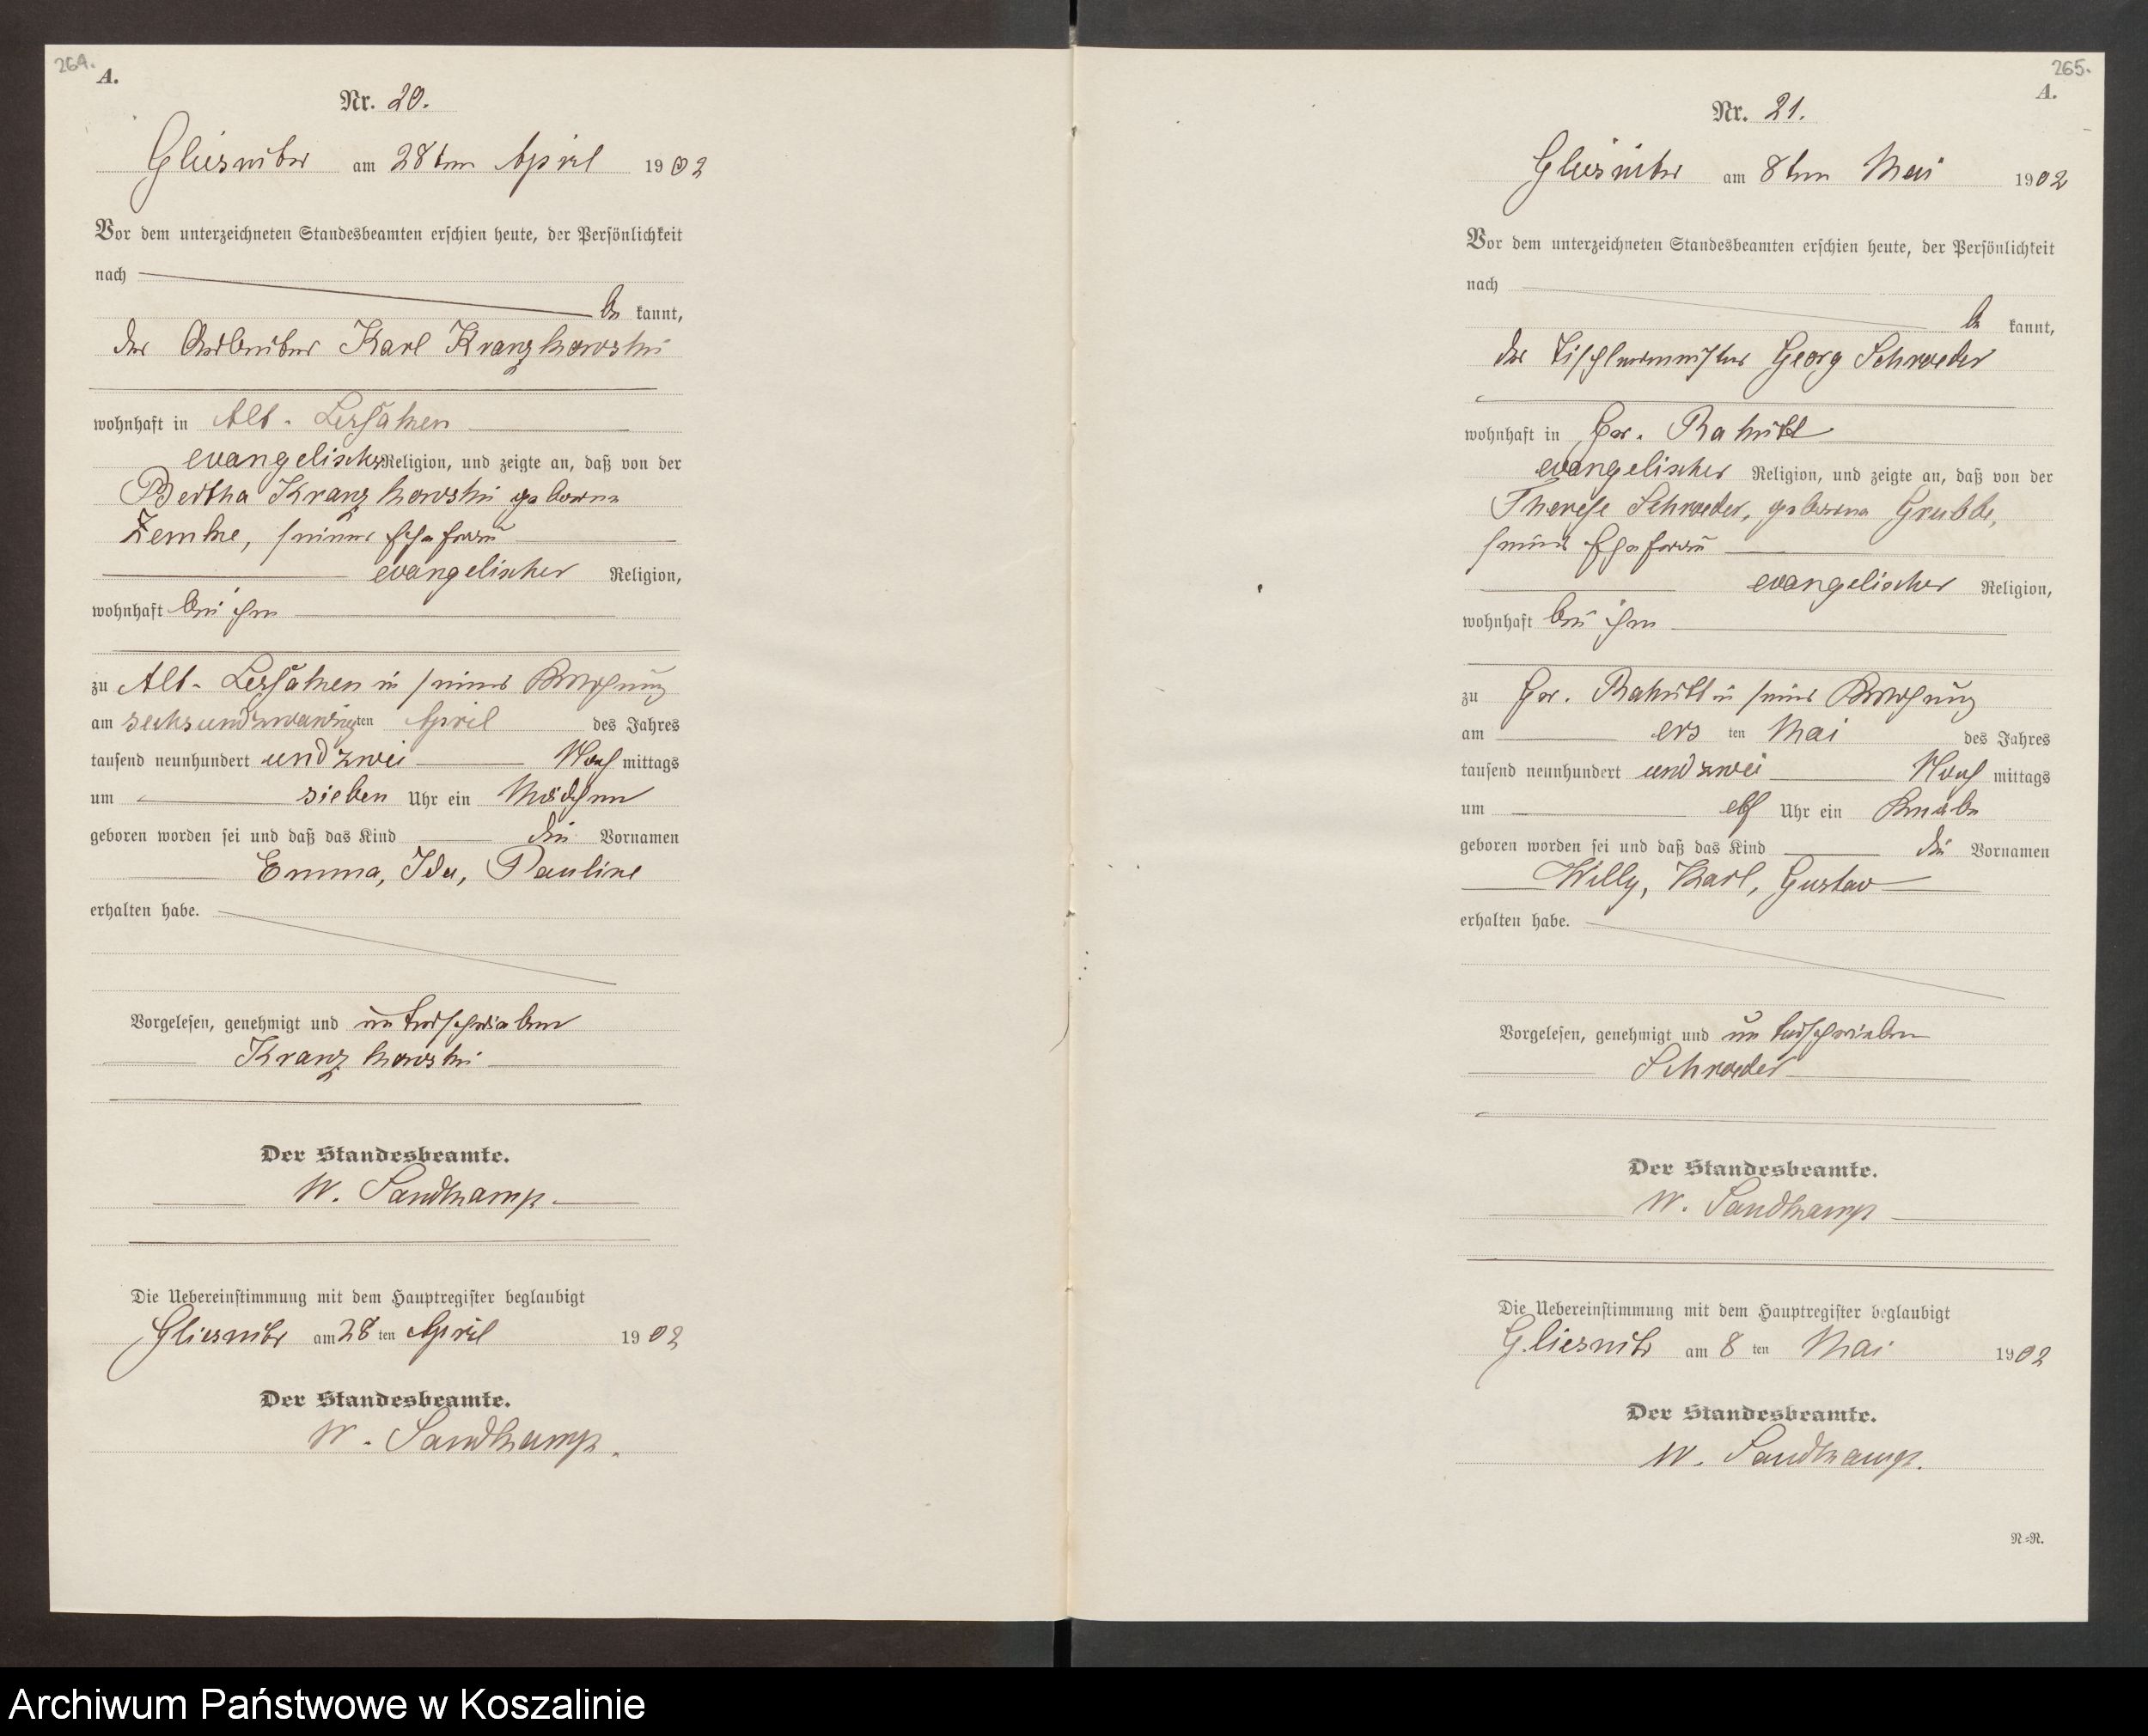 264.
A.
Nr. 20.
Gliesnitz am 28ten April 1902
Vor dem unterzeichneten Standesbeamten erschien heute, der Persönlichkeit
nach
be kannt,
der Arbeiter Karl Kranzkowski
wohnhaft in Alt-
evangelischer Religion, und zeigte an, daß von der
Bertha Kranzkowski geborene
Zemke, seiner Ehefrau
evangelischer Religion,
wohnhaft bei ihm
zu Alt- in seiner Wohnung
am sechsundzwanzigten April des Jahres
tausend neunhundert und zwei Nach mittags
um sieben Uhr ein Mädchen
geboren worden sei und daß das Kind die Vornamen
Emma, Ida, Pauline
erhalten habe.
Vorgelesen, genehmigt und unterschrieben
Kranzkowski
Der Standesbeamte.
W. Sandkamp
Die Uebereinstimmung mit dem Hauptregister beglaubigt
Gliesnitz am 28 ten April 1902
Der Standesbeamte.
W. Sandkamp.
265.
A.
Nr. 21.
Gliesnitz am 8ten Mai 1902
Vor dem unterzeichneten Standesbeamten erschien heute, der Persönlichkeit
nach
be kannt,
der Tischlermeister Georg Schroeder
wohnhaft in Gr. Rakitt
evangelischer Religion, und zeigte an, daß von der
Therese Schroeder, geborene Grubbe,
seiner Ehefrau
evangelischer Religion,
wohnhaft bei ihm
zu Gr. Rakitt in seiner Wohnung
am ers ten Mai des Jahres
tausend neunhundert und zwei Nach mittags
um elf Uhr ein Knabe
geboren worden sei und daß das Kind die Vornamen
Willy, Karl, Gustav
erhalten habe.
Vorgelesen, genehmigt und unterschrieben
Schroeder
Der Standesbeamte.
W. Sandkamp
Die Uebereinstimmung mit dem Hauptregister beglaubigt
Gliesnitz am 8 ten Mai 1902
Der Standesbeamte.
W. Sandkamp.
N=N.
Archiwum Państwowe w Koszalinie